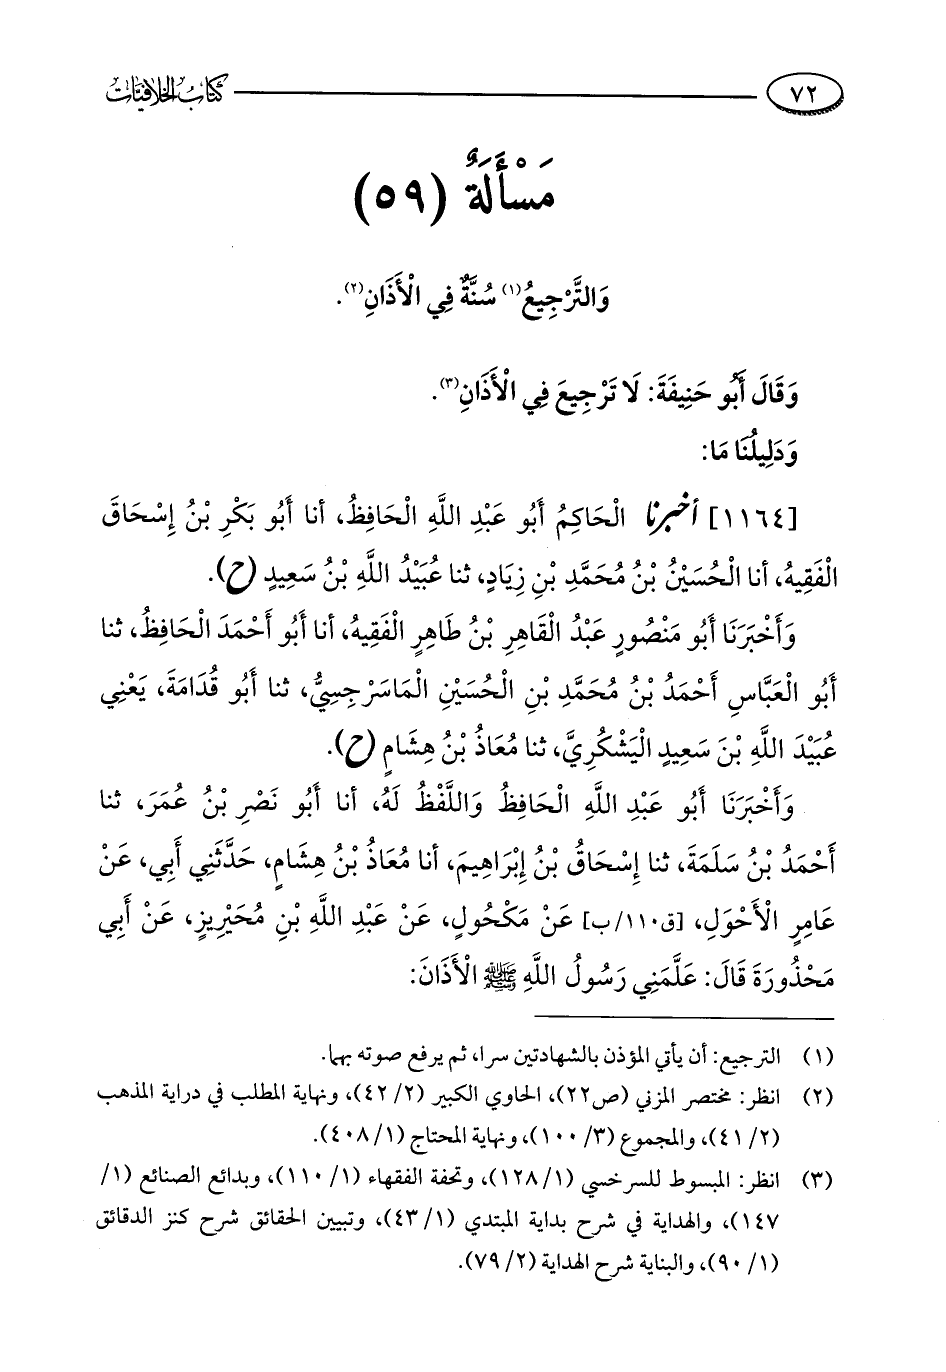 ٧٢
كتاب الخلافيات
مَسْأَلَةٌ (٥٩)
وَالتَّرْجِيعُ(١) سُنَّةٌ فِي الْأَذَانِ(٢).
وَقَالَ أَبُو حَنِيفَةَ: لَا تَرْجِيعَ فِي الْأَذَانِ(٣).
وَدَلِيلُنَا مَا:
[١١٦٤] أخبرنا الْحَاكِمُ أَبُو عَبْدِ اللَّهِ الْحَافِظُ، أنا أَبُو بَكْرِ بْنُ إِسْحَاقَ
الْفَقِيهُ، أنا الْحُسَيْنُ بْنُ مُحَمَّدِ بْنِ زِيَادٍ، ثنا عُبَيْدُ اللَّهِ بْنُ سَعِيدٍ (ح).
وَأَخْبَرَنَا أَبُو مَنْصُورٍ عَبْدُ الْقَاهِرِ بْنُ طَاهِرٍ الْفَقِيهُ، أنا أَبُو أَحْمَدَ الْحَافِظُ، ثنا
أَبُو الْعَبَّاسِ أَحْمَدُ بْنُ مُحَمَّدِ بْنِ الْحُسَيْنِ الْمَاسَرْجِسِيُّ، ثنا أَبُو قُدَامَةَ، يَعْنِي
عُبَيْدَ اللَّهِ بْنَ سَعِيدٍ الْيَشْكُرِيَّ، ثنا مُعَاذُ بْنُ هِشَامٍ (ح).
وَأَخْبَرَنَا أَبُو عَبْدِ اللَّهِ الْحَافِظُ وَاللَّفْظُ لَهُ، أنا أَبُو نَصْرِ بْنُ عُمَرَ، ثنا
أَحْمَدُ بْنُ سَلَمَةَ، ثنا إِسْحَاقُ بْنُ إِبْرَاهِيمَ، أنا مُعَاذُ بْنُ هِشَامٍ، حَدَّثَنِي أَبِي، عَنْ
عَامِرٍ الْأَحْوَلِ، [ق١١٠/ب] عَنْ مَكْحُولٍ، عَنْ عَبْدِ اللَّهِ بْنِ مُحَيْرِيزٍ، عَنْ أَبِي
مَحْذُورَةَ قَالَ: عَلَّمَنِي رَسُولُ اللَّهِ ﷺ الْأَذَانَ:
(١) الترجيع: أن يأتي المؤذن بالشهادتين سرا، ثم يرفع صوته بهما.
(٢) انظر: مختصر المزني (ص٢٢)، الحاوي الكبير (٢/ ٤٢)، ونهاية المطلب في دراية المذهب
(٢/ ٤١)، والمجموع (٣/ ١٠٠)، ونهاية المحتاج (١/ ٤٠٨).
(٣) انظر: المبسوط للسرخسي (١/ ١٢٨)، وتحفة الفقهاء (١/ ١١٠)، وبدائع الصنائع (١/
١٤٧)، والهداية في شرح بداية المبتدي (١/ ٤٣)، وتبيين الحقائق شرح كنز الدقائق
(١/ ٩٠)، والبناية شرح الهداية (٢/ ٧٩).